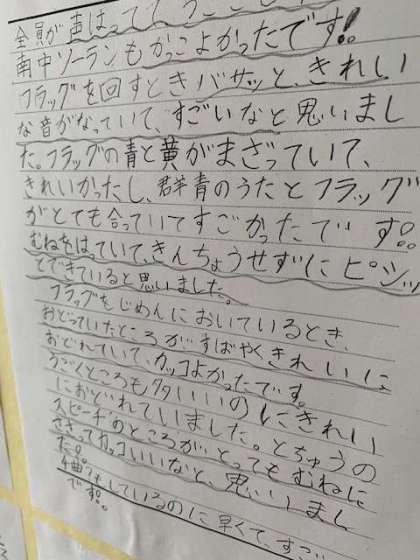 全員が声はってて
南中ソーランもかっこよかったです!!
フラッグを回すときバサッと、きれい
な音がなっていて、すごいなと思いまし
た。フラッグの青と黄がまざっていて、
きれいかったし、群青のうたとフラッグ
がとても合っていてすごかったです!!
むねをはっていて、きんちょうせずにピシッ
とできていると思いました。
フラッグをじめんにおいているとき、
おどっていたところがすばやくきれいに
おどれていて、カッコよかったです。
うごくところも多いいのにきれい
におどれていました。とちゅうの
スピーチのところが、とってもむねに
ささってカッコいいなと、思いまし
た。
しているのに早くて、すご
です!!